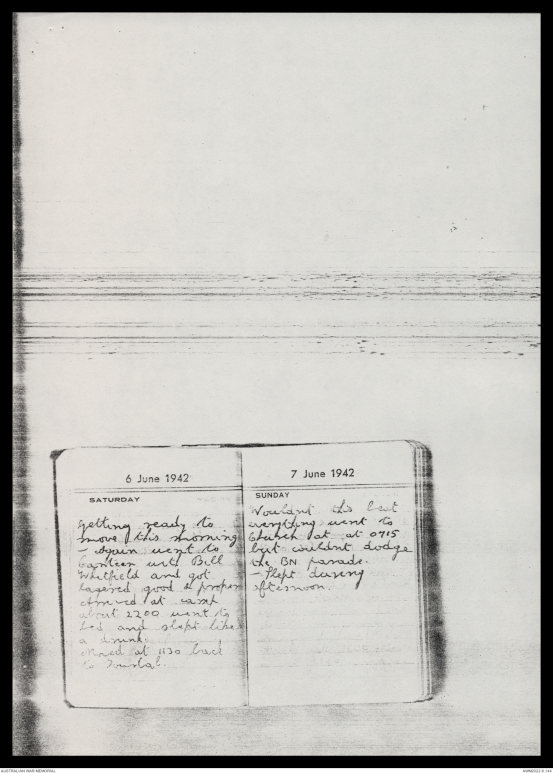 6 June 1942
SATURDAY
Getting ready to
move this morning
- Again went to
Canteen with Bill
Whitfield and got
lagered good & proper
arrived at camp
about 2200 went to
bed and slept like
a drunk.
Moved at 1130 back
to
7 June 1942
SUNDAY
Wouldnt this beat
everything went to
Church at at 0715
but couldnt dodge
the BN parade.
- Slept during
afternoon.
AUSTRALIAN WAR MEMORIAL